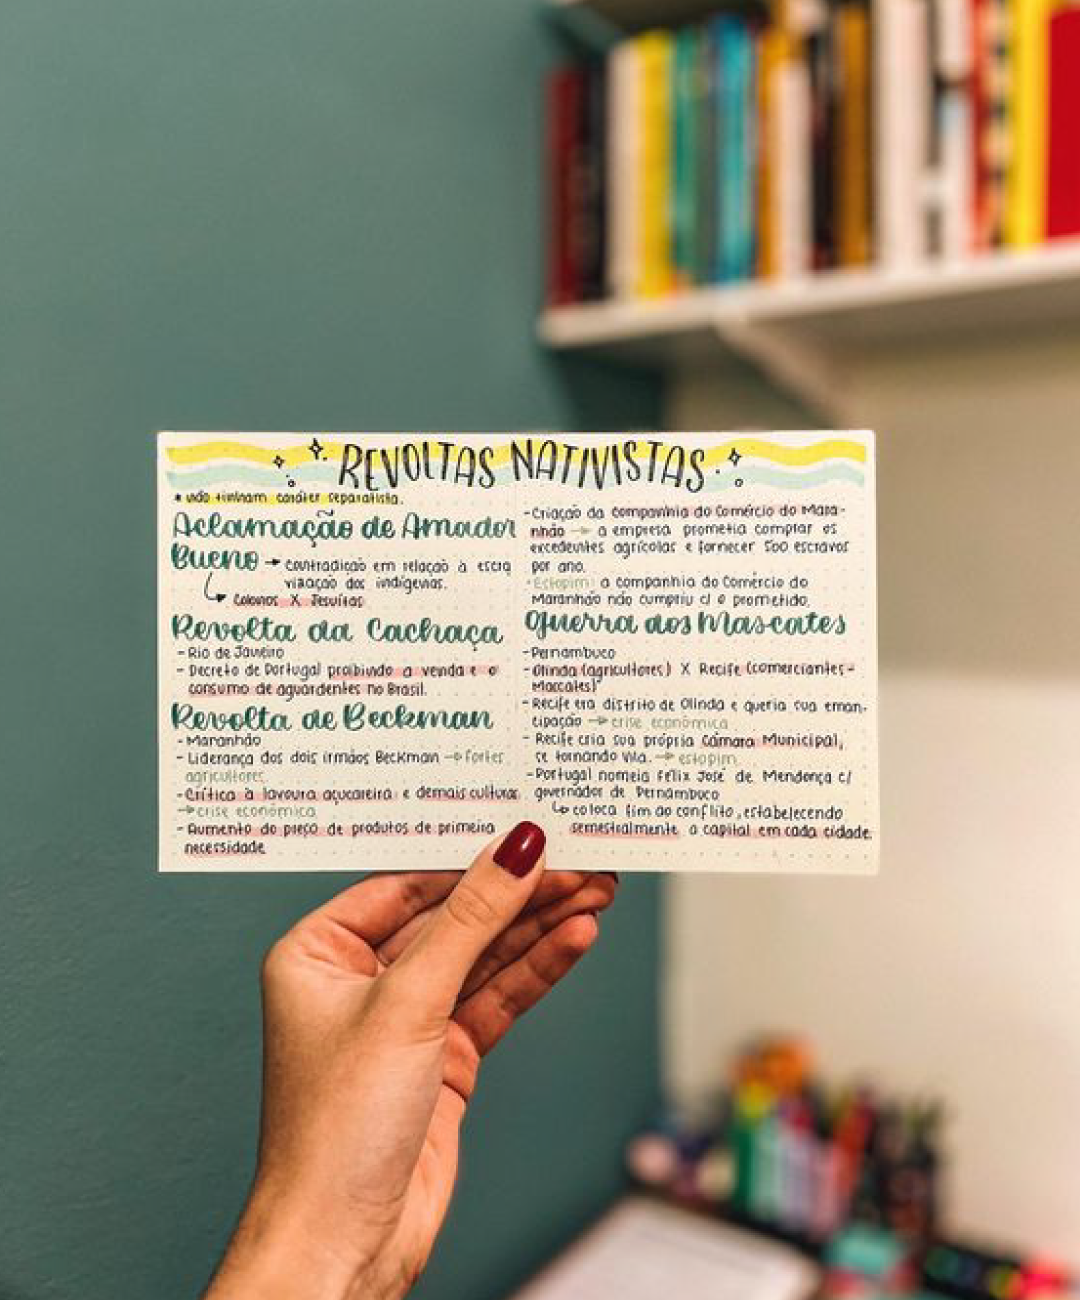 REVOLTAS NATIVISTAS
* não tinham caráter separatista.
Aclamação de Amador
Bueno → contradição em relação à escra
vização dos indígenas.
↳ Colonos X Jesuítas
Revolta da Cachaça
- Rio de Janeiro
- Decreto de Portugal proibindo a venda e o
consumo de aguardentes no Brasil.
Revolta de Beckman
- Maranhão
- Liderança dos dois irmãos Beckman → fortes
agricultores.
- Crítica à lavoura açucareira e demais culturas
→ crise econômica
- Aumento do preço de produtos de primeira
necessidade
- Criação da companhia do Comércio do Mara-
nhão → a empresa prometia comprar os
excedentes agrícolas e fornecer 500 escravos
por ano.
- Estopim: a companhia do Comércio do
Maranhão não cumpriu c/ o prometido.
Guerra dos Mascates
- Pernambuco
- Olinda (agricultores) X Recife (comerciantes -
Mascates)
- Recife era distrito de Olinda e queria sua eman-
cipação → crise econômica
- Recife cria sua própria Câmara Municipal,
se tornando Vila. → estopim
- Portugal nomeia Felix José de Mendonça c/
governador de Pernambuco
↳ coloca fim ao conflito, estabelecendo
semestralmente a capital em cada cidade.